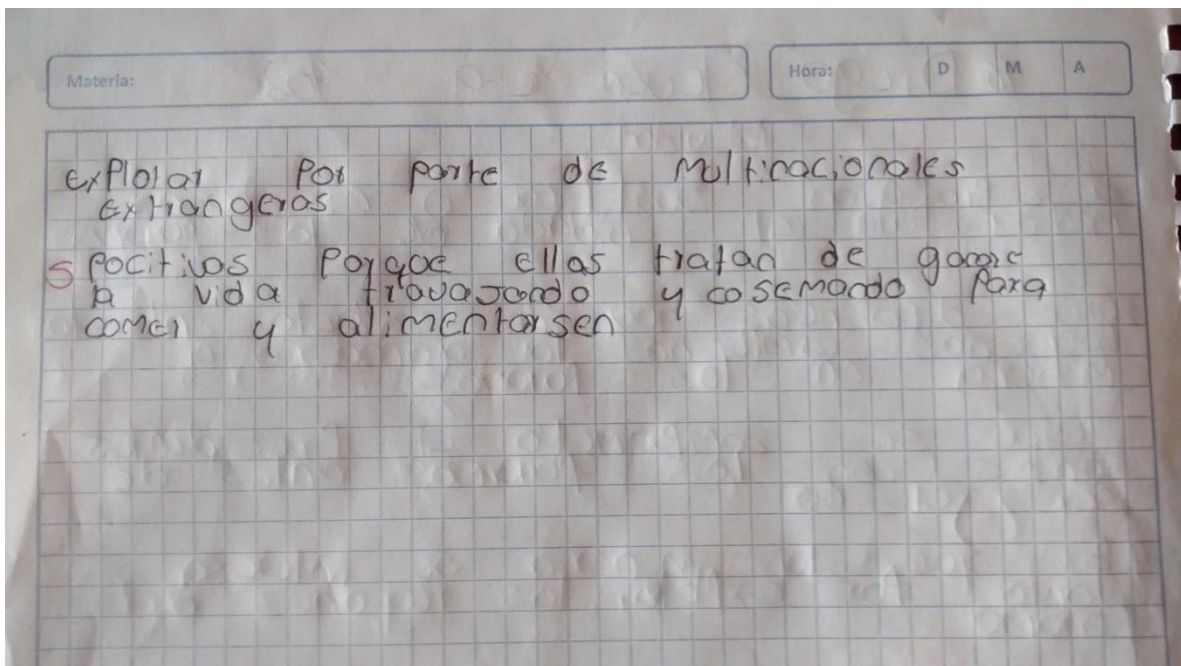 Materia:
Hora: D M A
Explotar por parte de Multinacionales
Extrangeras
5 Pocitivos Porque ellas tratan de
la vida travajando y cosemando para
comer y alimentarsen